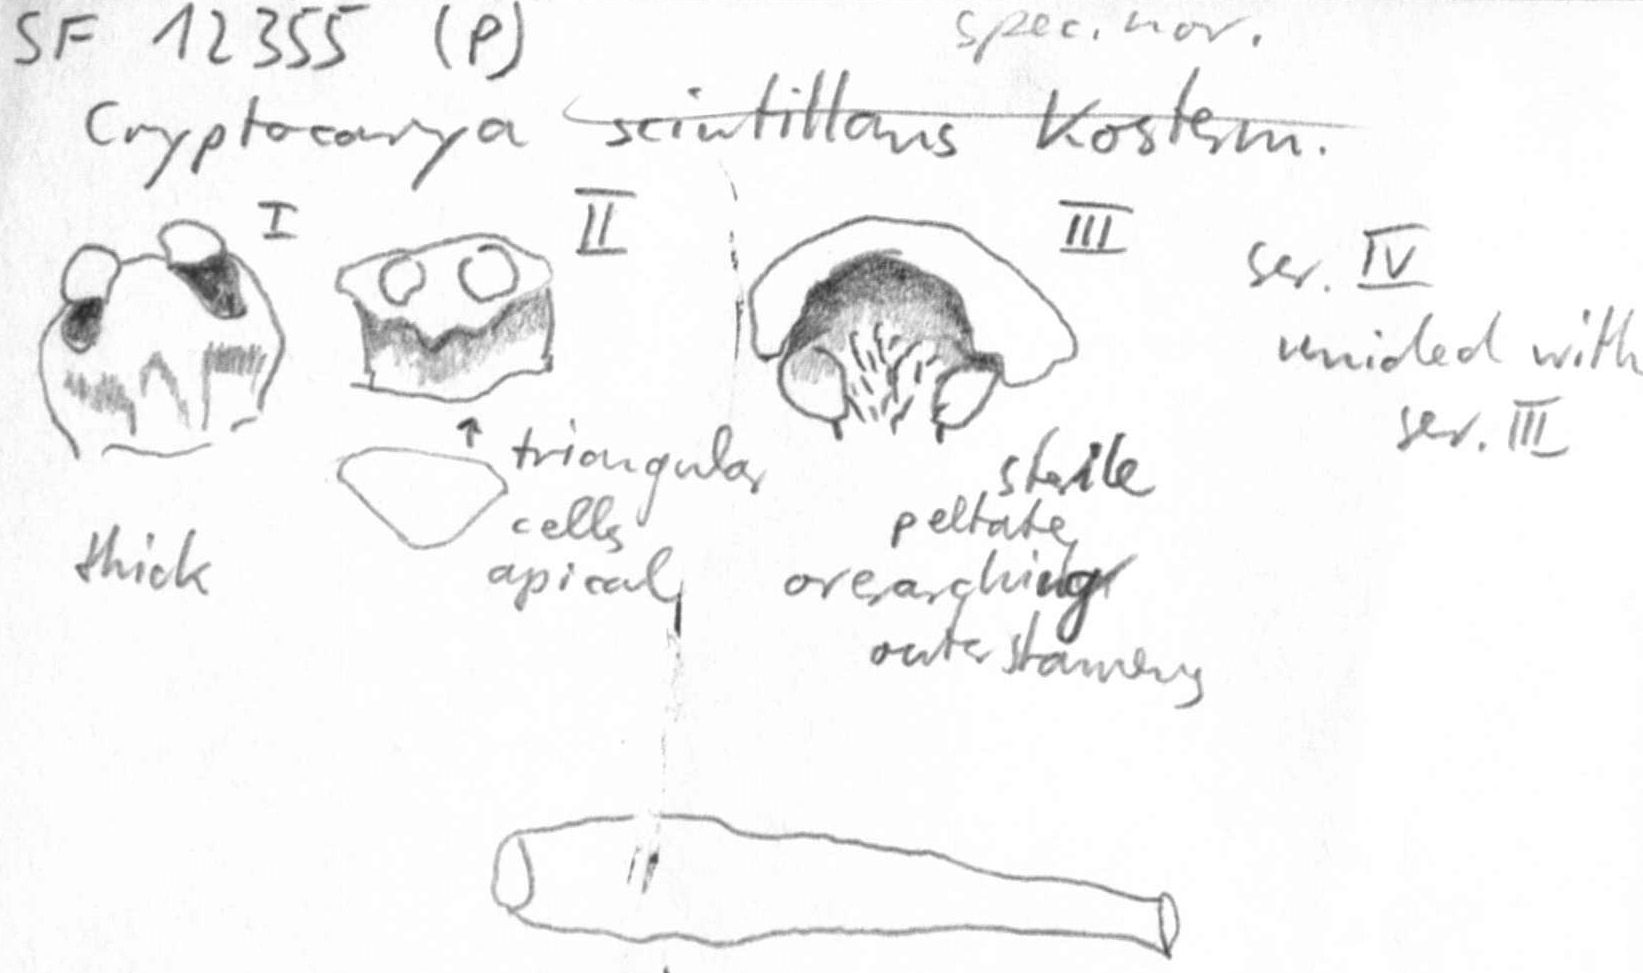 SF 12355 (P)
spec. nov.
Cryptocarya scintillans Kosterm.
I
II
III
ser. IV
unided with
ser. III
↑ triangular
cells
apical
thick
sterile
peltate,
overarching
outer stamens